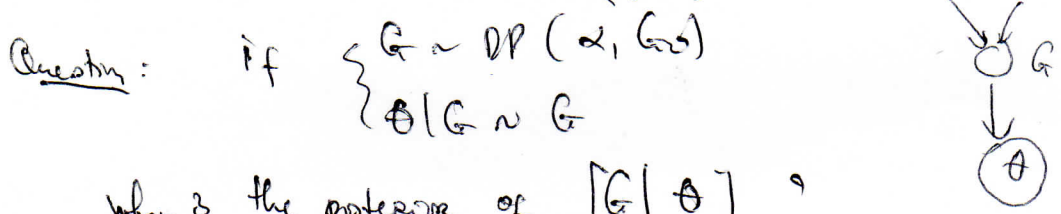 Question: if { G ~ DP(α, G₀) G
θ|G ~ G
θ
what is the posterior of [G|θ] ?